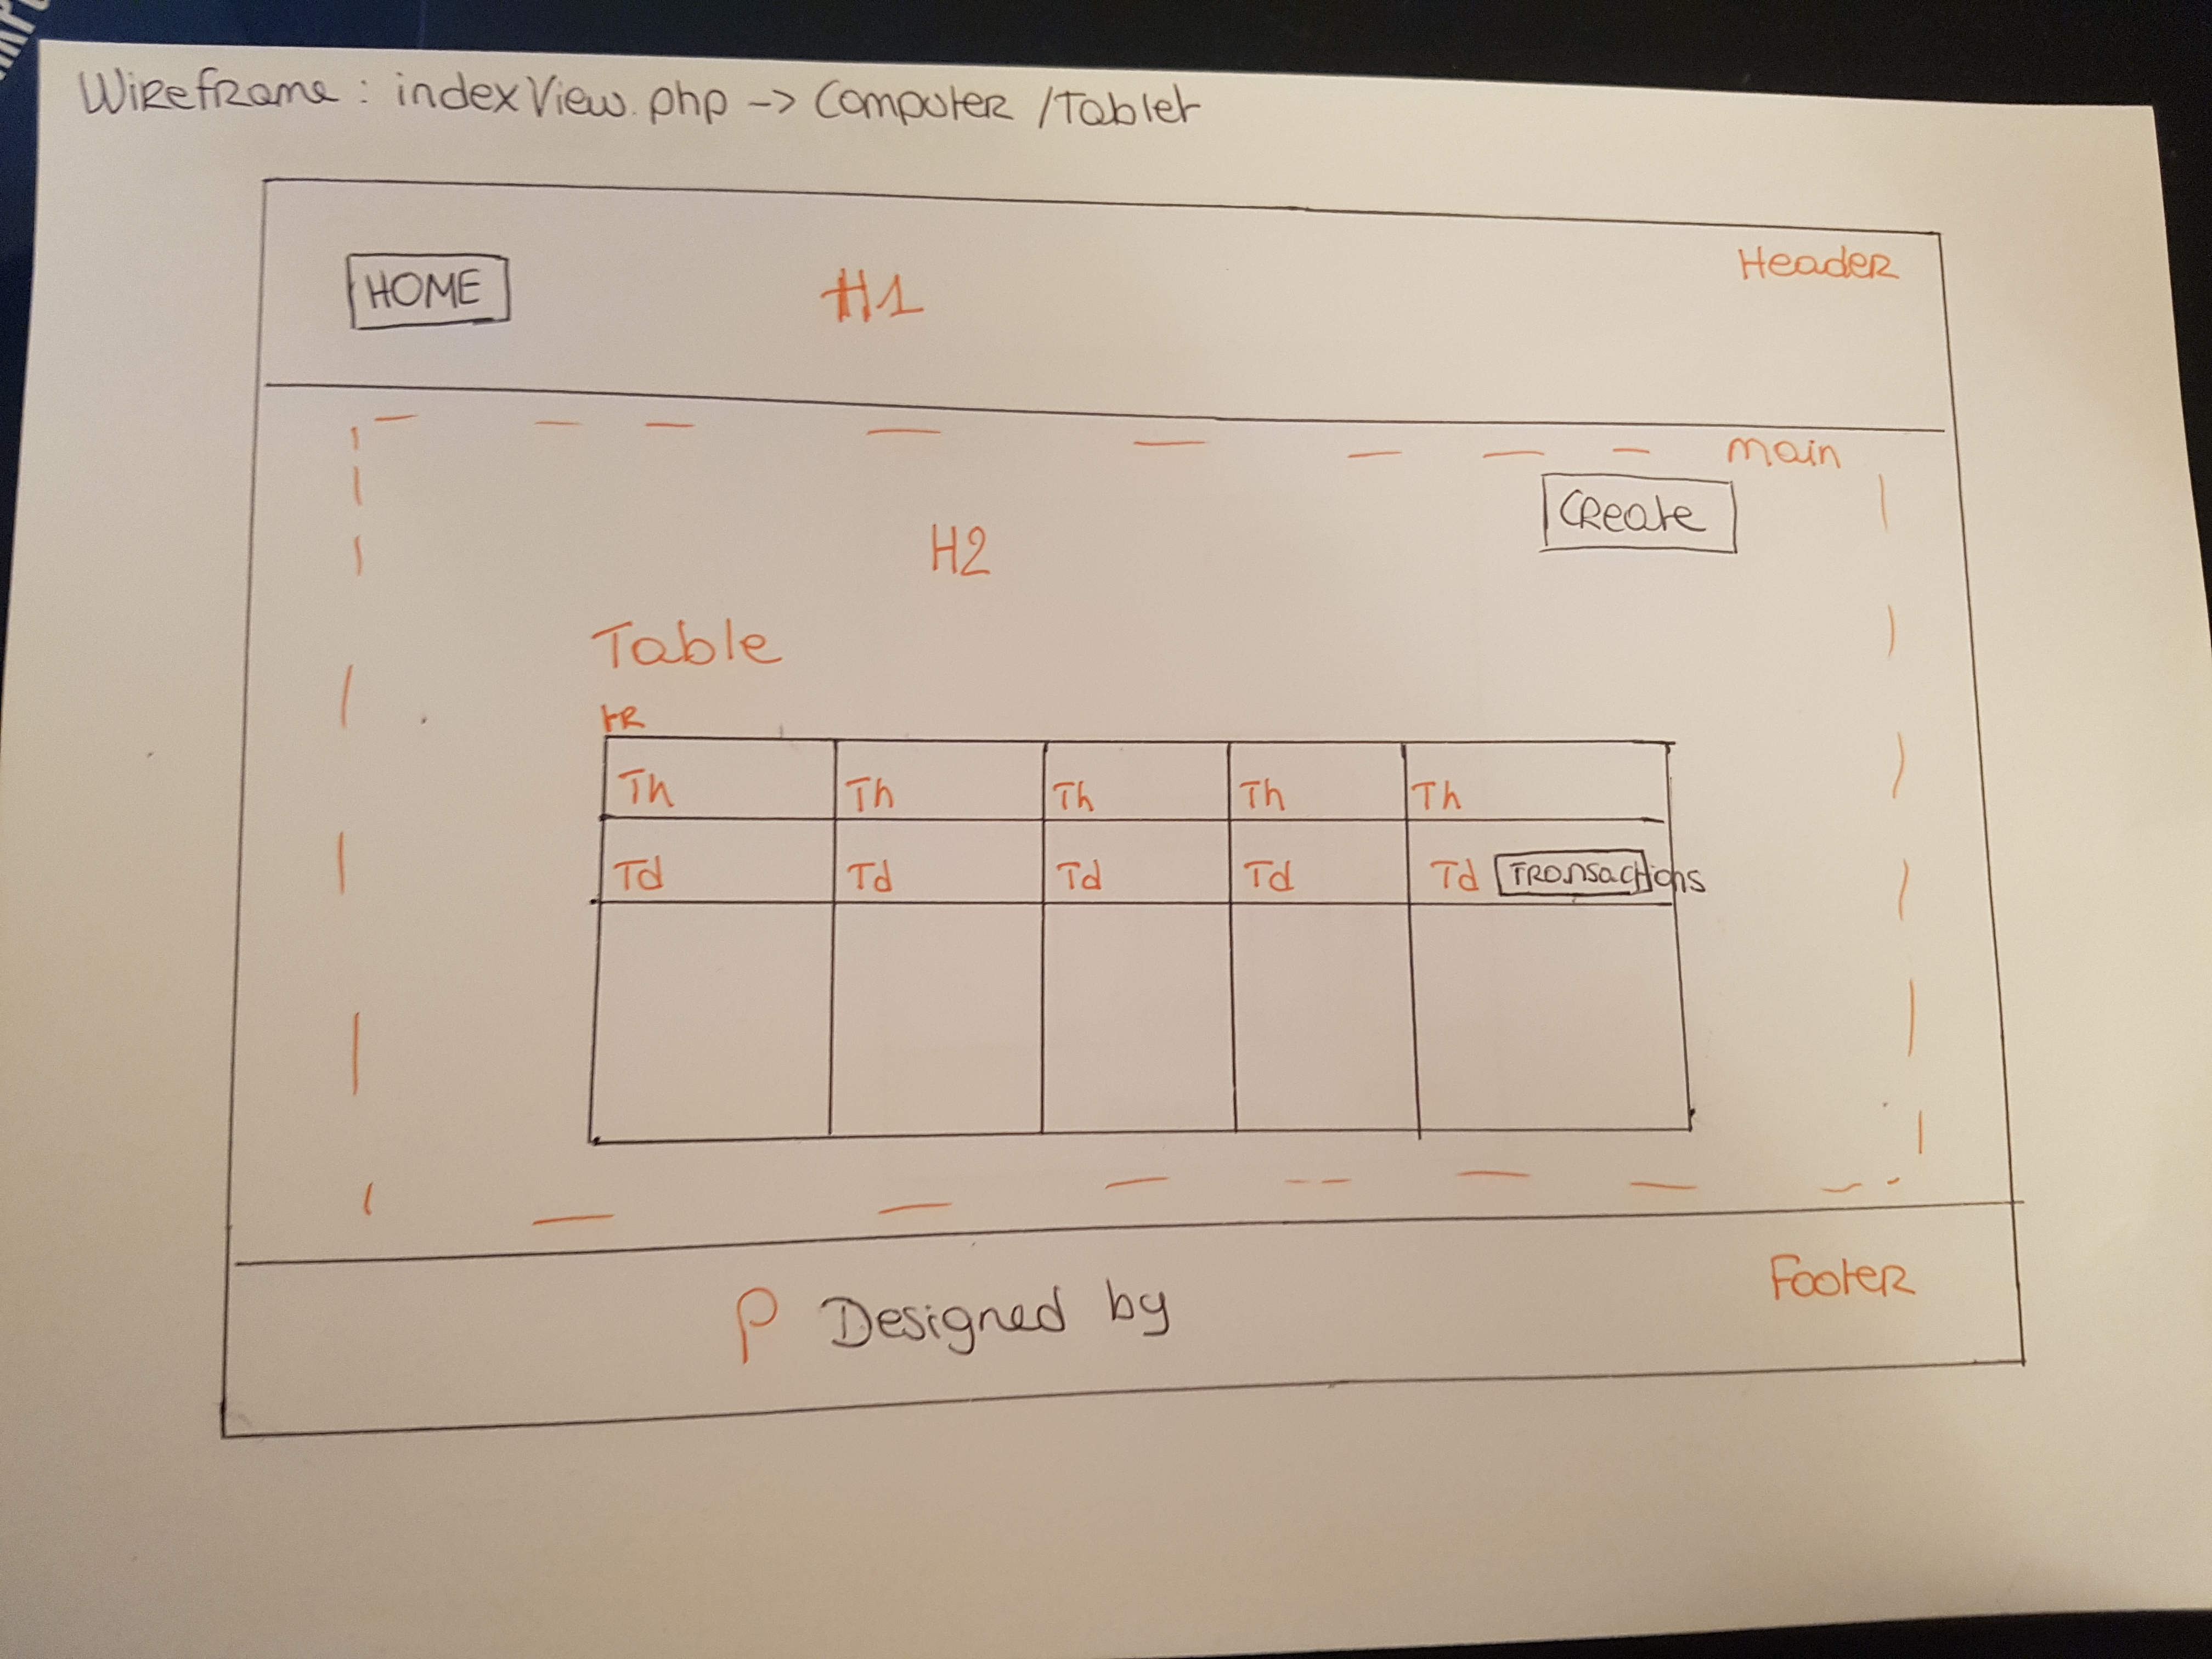 Wireframe : indexView.php -> Computer / Tablet
Header
HOME H1
main
Create
H2
Table
tR
Th Th Th Th Th
Td Td Td Td Td Transactions
Footer
P Designed by